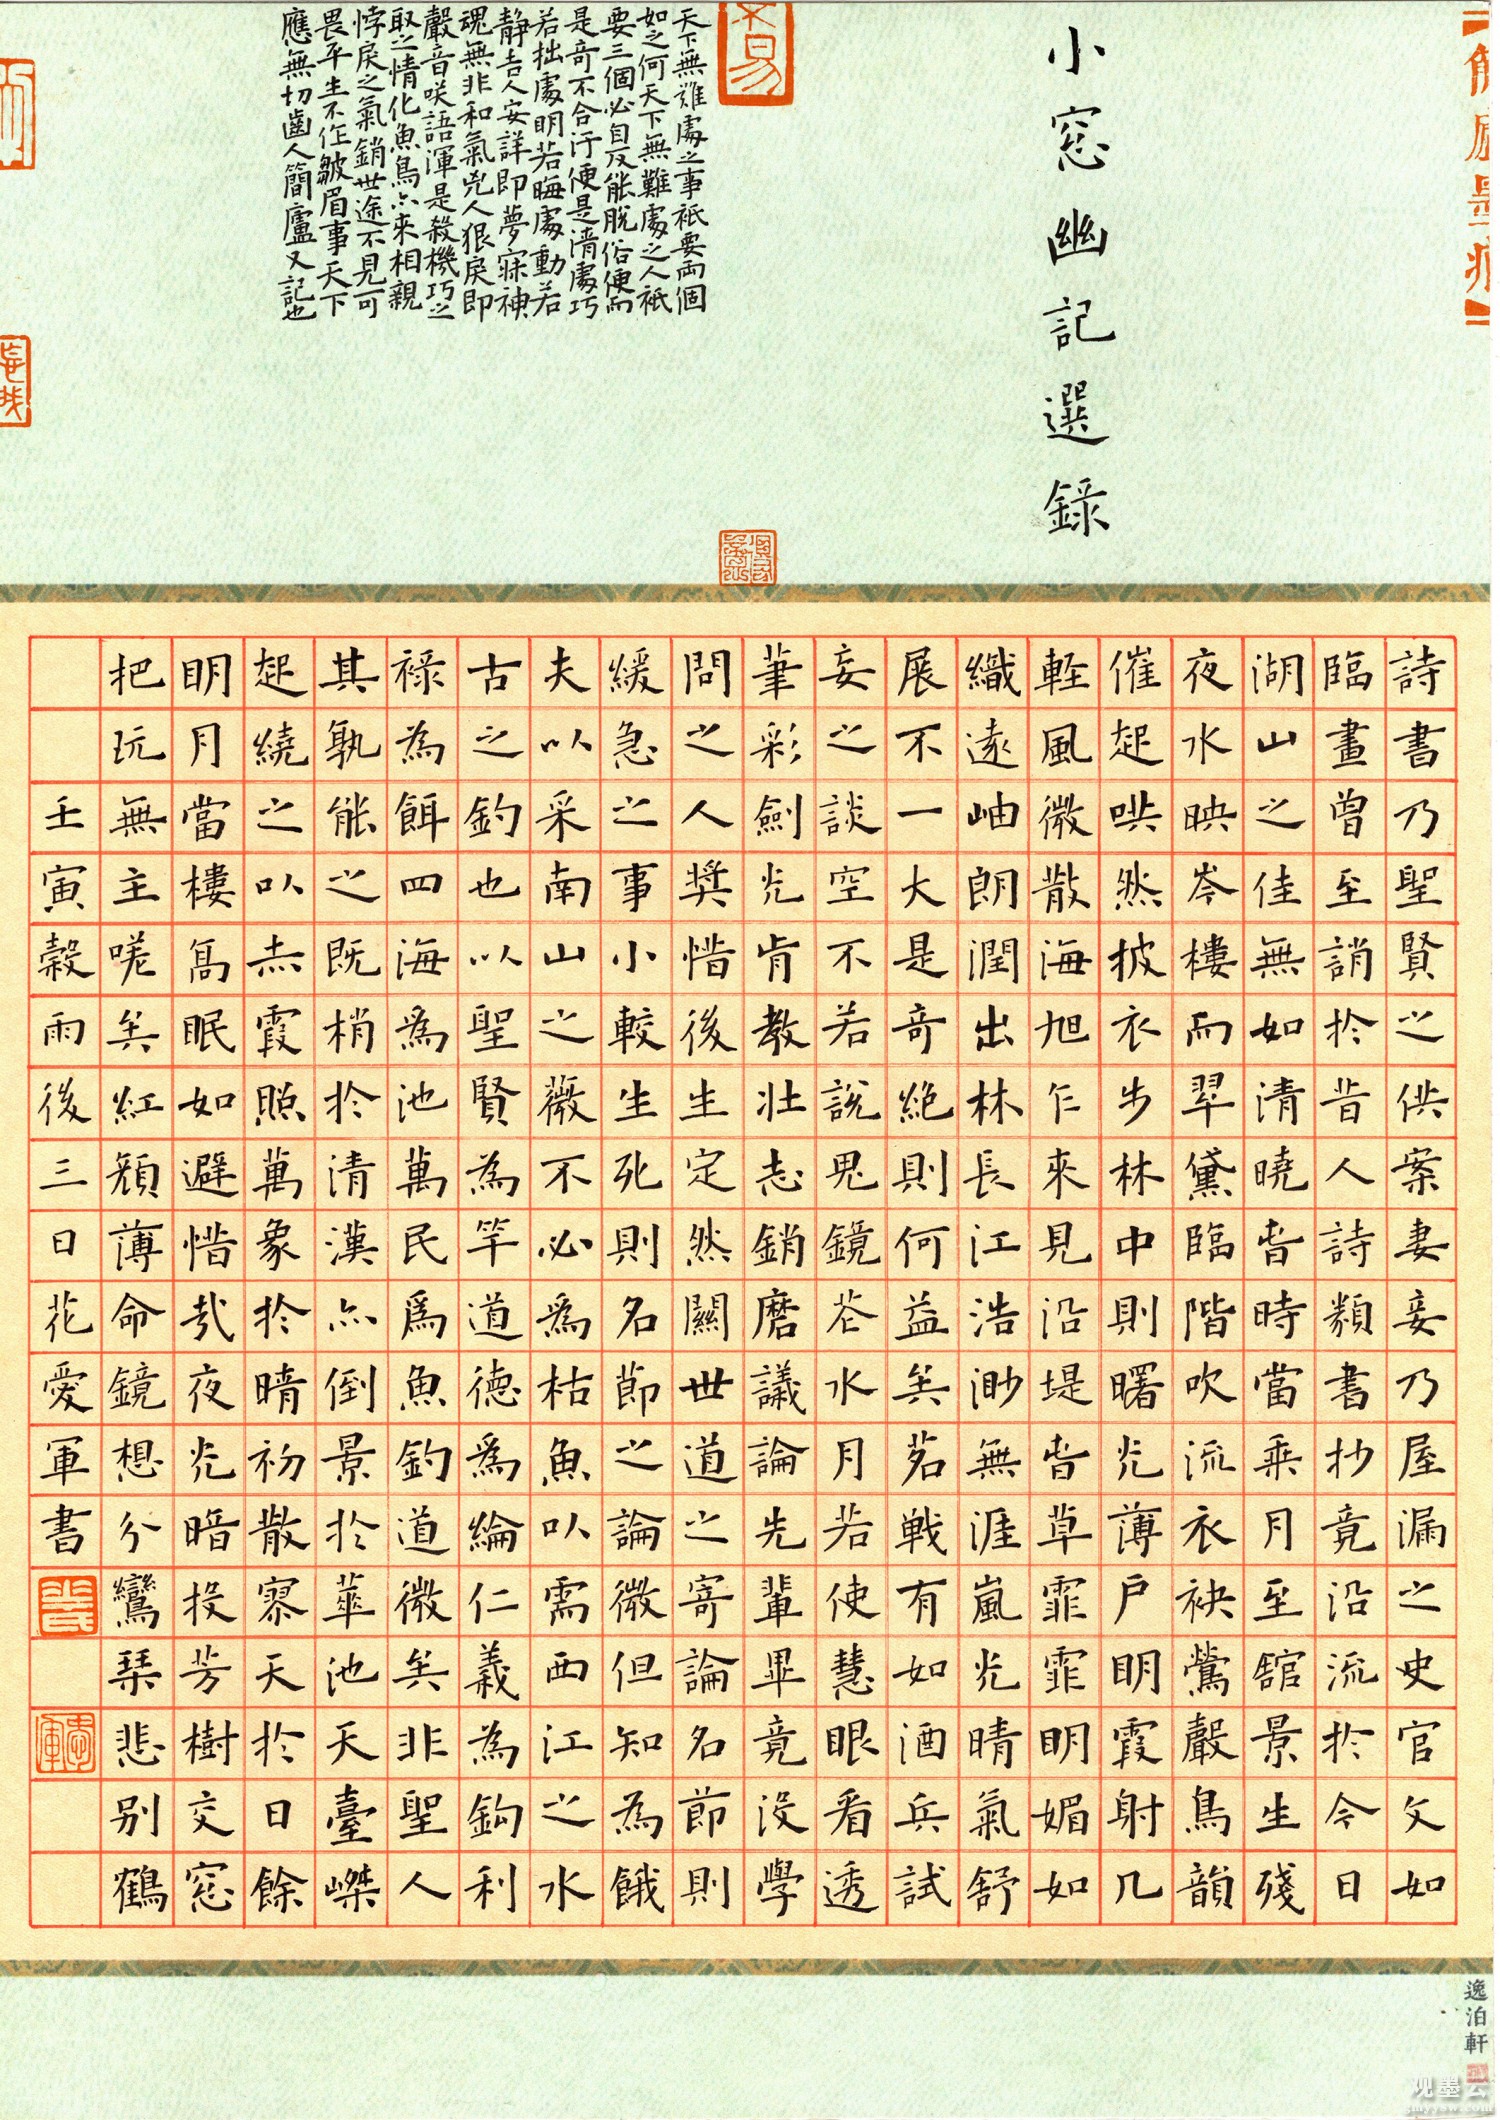 小窓幽記選錄
天下無難處之事衹要兩個
如之何天下無難處之人衹
要三個必自反能脫俗便而
是奇不合汙便是清處巧
若拙處明若晦處動若
静吉人安詳即夢寐神
魂無非和氣兇人狠戾即
聲音咲語渾是殺機巧之
取之情化魚鳥亦來相親
悖戾之氣銷世途不見可
畏平生不作皺眉事天下
應無切齒人簡廬又記也
詩書乃聖賢之供案妻妾乃屋漏之史官文如
臨畫曾至誚於昔人詩類書抄竟沿流於今日
湖山之佳無如清曉旹時當乘月至舘景生殘
夜水映岑樓而翠黛臨階吹流衣袂鶯聲鳥韻
催起哄然披衣步林中則曙光薄戶明霞射几
輕風微散海旭乍來見沿堤旹草霏霏明媚如
織遠岫朗潤出林長江浩渺無涯嵐光晴氣舒
展不一大是奇絶則何益矣茗戰有如酒兵試
妄之談空不若說鬼鏡花水月若使慧眼看透
筆彩劍光肯教壯志銷磨議論先輩畢竟沒學
問之人奬惜後生定然關世道之寄論名節則
緩急之事小較生死則名節之論微但知為餓
夫以采南山之薇不必為枯魚以需西江之水
古之釣也以聖賢為竿道德為綸仁義為鈎利
祿為餌四海為池萬民為魚釣道微矣非聖人
其孰能之既梢於清漢亦倒景於華池天臺嵥
起繞之以赤霞照萬象於晴初散寥天於日餘
明月當樓高眠如避惜哉夜光暗投芳樹交窓
把玩無主嗟矣紅顏薄命鏡想分鸞琴悲別鶴
壬寅穀雨後三日花愛軍書
逸泊軒
观墨云